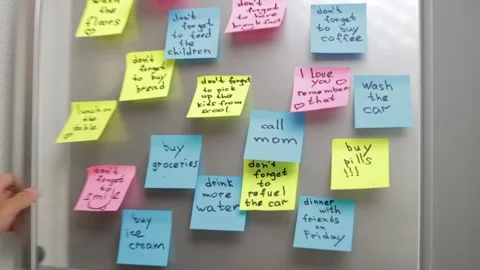 wash
the
floors
don't
forget
to feed
the
children
don't
forget
to have
breakfast
don't
forget
to buy
coffee
don't
forget
to buy
bread
don't forget
to pick
up the
kids from
scool
I love
you
remember
that
wash
the
car
lunch on
the table
call
mom
buy
groceries
buy
pills
!!!
don't
forget
to
smile
drink
more
water
don't
forget
to
refuel
the car
dinner
with
friends
on
Friday
buy
ice
cream